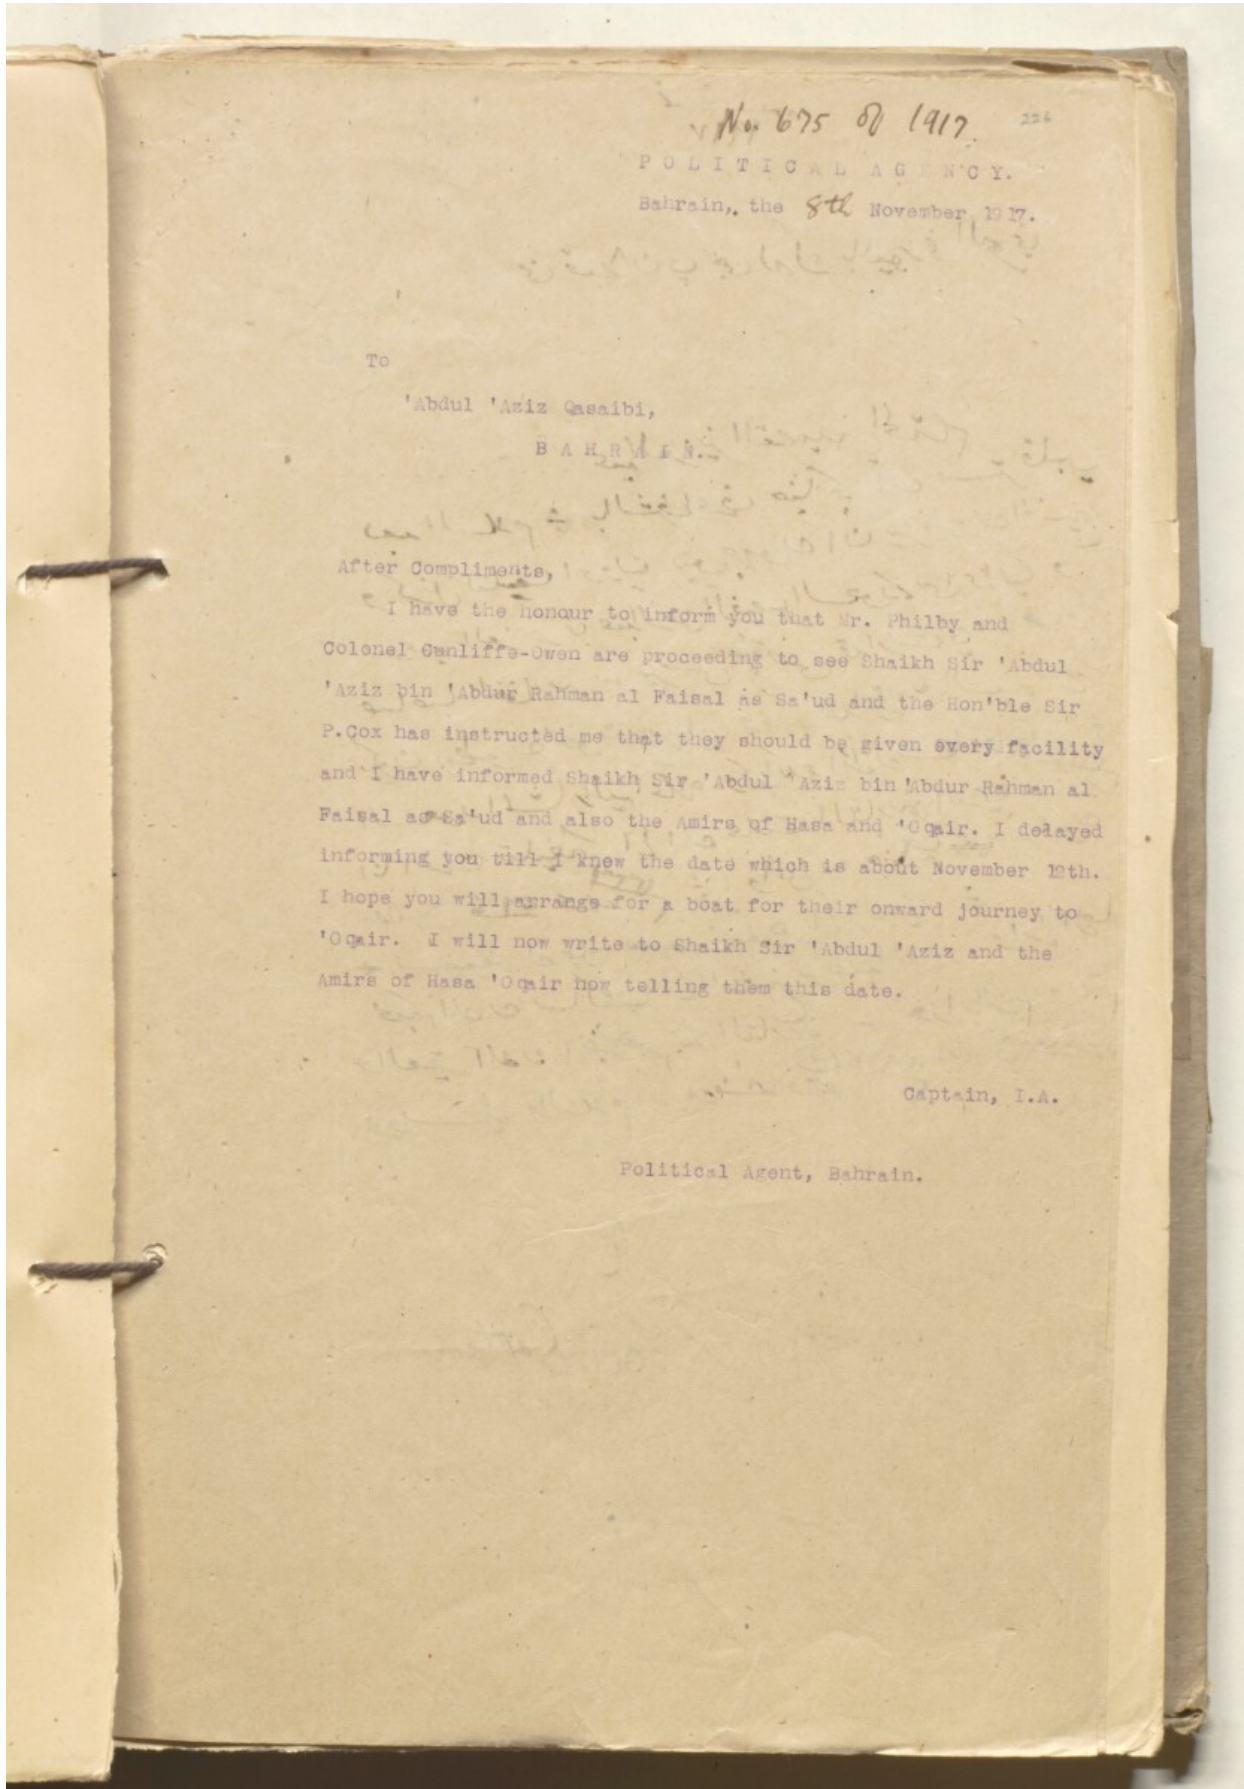 No. 675 of 1917.
226
POLITICAL AGENCY.
Bahrain, the 8th November 1917.
To
'Abdul 'Aziz Qasaibi,
BAHRAIN.
After Compliments,
I have the honour to inform you that Mr. Philby and
Colonel Cunliffe-Owen are proceeding to see Shaikh Sir 'Abdul
'Aziz bin 'Abdur Rahman al Faisal as Sa'ud and the Hon'ble Sir
P.Cox has instructed me that they should be given every facility
and I have informed Shaikh Sir 'Abdul 'Aziz bin 'Abdur Rahman al
Faisal as Sa'ud and also the Amirs of Hasa and 'Oqair. I delayed
informing you till I knew the date which is about November 12th.
I hope you will arrange for a boat for their onward journey to
'Oqair. I will now write to Shaikh Sir 'Abdul 'Aziz and the
Amirs of Hasa 'Oqair now telling them this date.
Captain, I.A.
Political Agent, Bahrain.